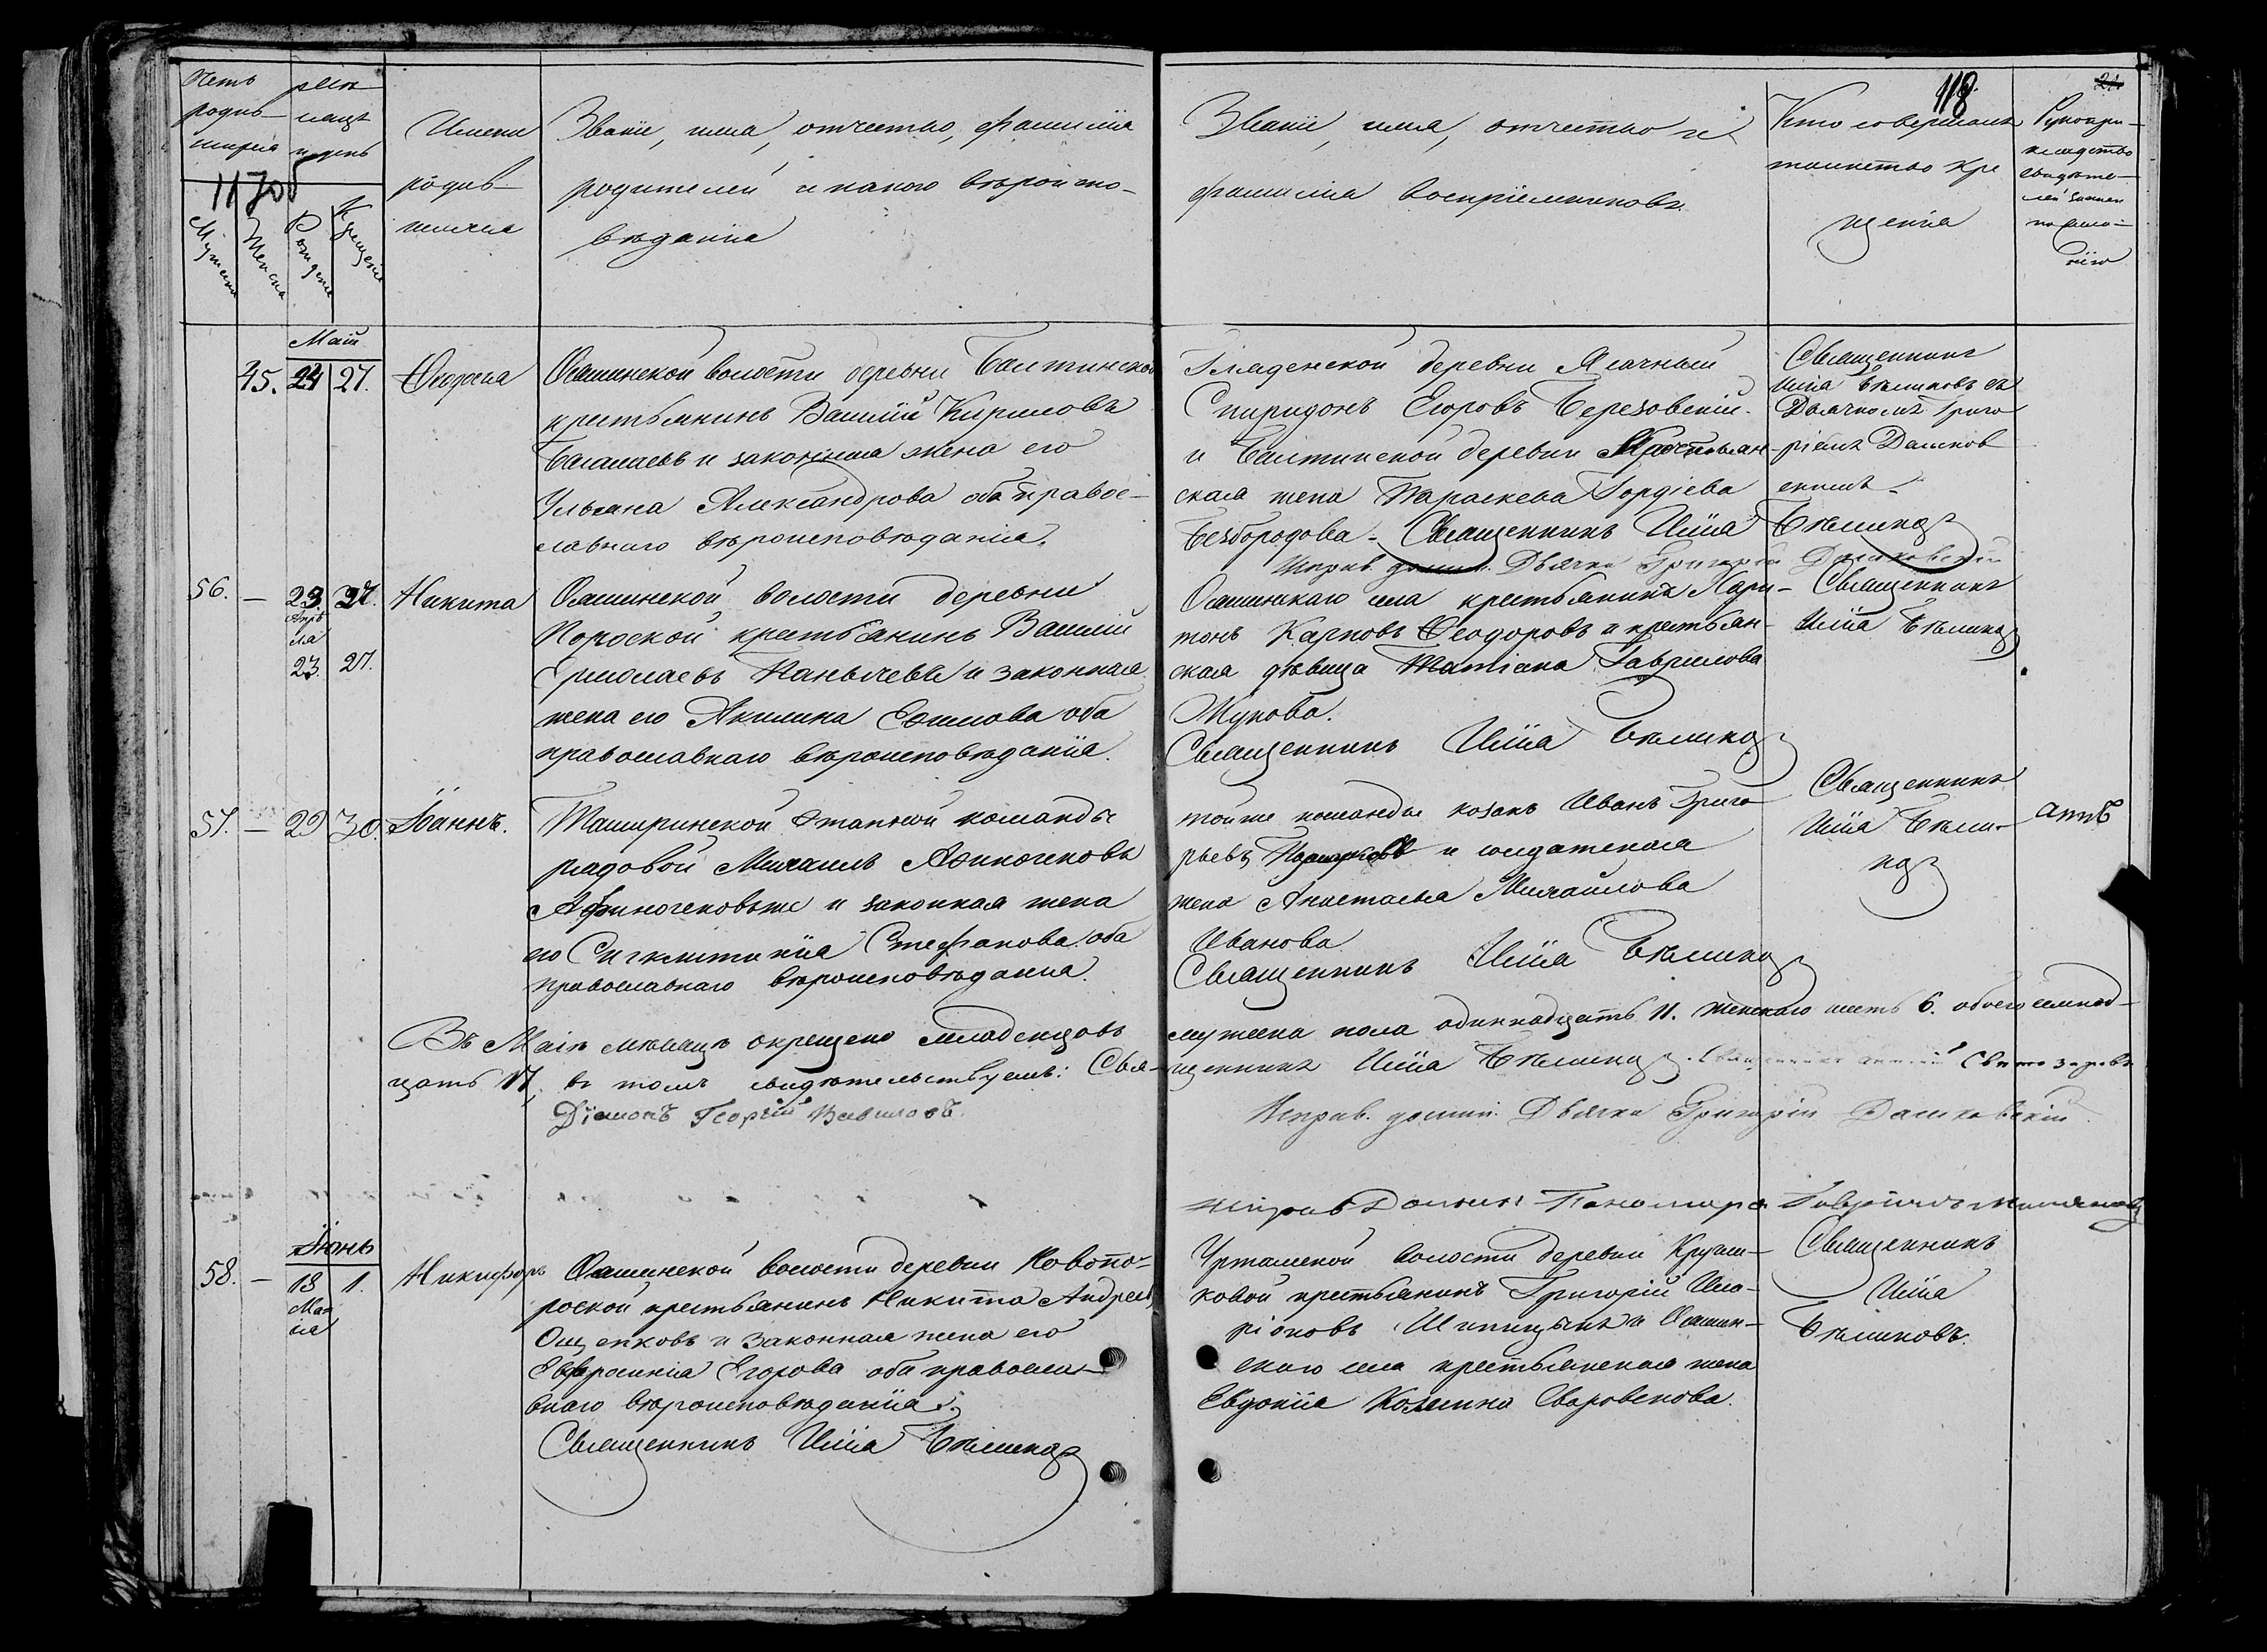 118
Счетъ
родив-
шихся
мѣсяцъ
и день
Имена
родив-
шихся
Званіе, имя, отчество, фамилія
родителей и какого вѣроиспо-
вѣданія
Званіе, имя, отчество и
фамилія воспріемниковъ
Кто совершалъ
таинство кре
щенія
Рукопри-
кладство
свидѣте-
лей записи
по жела-
нію
Мужска
Женска
Рожденіе
Крещеніе
Май
45. 24 27. Ѳеодосія
Ояшинской волости деревни Балтинской
крестьянинъ Василій Кириловъ
и законная жена его
Ульяна Александрова оба правос-
лавнаго вѣроисповѣданія.
деревни Ясачный
Спиридонъ Егоровъ Березовскій
и Балтинской деревни Крестьян-
ская жена Параскева Гордіева
Безбородова. Священникъ Илія Бѣликовъ
Исправ. долж. Дьячка Григорій Дашковскій
Священникъ
Илія Бѣликовъ съ
Дьячкомъ Григо
ріемъ Дашков
скимъ.
56. — 23. 27. Никита
Апрѣ
ля
23. 27.
Ояшинской волости деревни
Поросской крестьянинъ Василій
Ермолаевъ и законная
жена его Акилина Ефимова оба
православнаго вѣроисповѣданія.
Ояшинскаго села крестьянинъ Хари-
тонъ Карповъ Ѳеодоровъ и крестьян-
ская дѣвица Татіана Гаврилова
Жукова.
Священникъ Илія Бѣликовъ
Священникъ
Илія Бѣликовъ
57. — 29 30. Іоаннъ.
Ташаринской Этапной команды
рядовой Михаилъ Афиногеновъ
Афиногеновъ же и законная жена
его Сигклитикія Стефанова оба
православнаго вѣроисповѣданія.
той же команды козакъ Иванъ Григо
рьевъ и солдатская
жена Анастасья Михайлова
Иванова
Священникъ Илія Бѣликовъ
Священникъ
Илія Бѣли-
ковъ
Въ Маіѣ мѣсяцѣ окрещено младенцовъ
мужеска пола одиннадцать 11. женскаго шесть 6. обоего семнад-
цать 17, въ томъ свидѣтельствуемъ: Свя-
щенникъ Илія Бѣликовъ. Священникъ
Діаконъ Георгій Вавиловъ.
Исправ. долж. Дьячка Григорій Дашковскій.
Исправ Должн Пономаря
Іюнь
58. — 18 1. Никифоръ
Мая
Ояшинской волости деревни Новопо-
роской крестьянинъ Никита Андреевъ
Ощепковъ и законная жена его
Евфросинія Егорова оба правосла-
внаго вѣроисповѣданія.
Священникъ Илія Бѣликовъ
Уртамской волости деревни Кругли-
ковой крестьянинъ Григорій Ила-
ріоновъ Шипицынъ и Ояшин-
скаго села крестьянская жена
Евдокія Козмина Сваровскова.
Священникъ
Илія
Бѣликовъ.